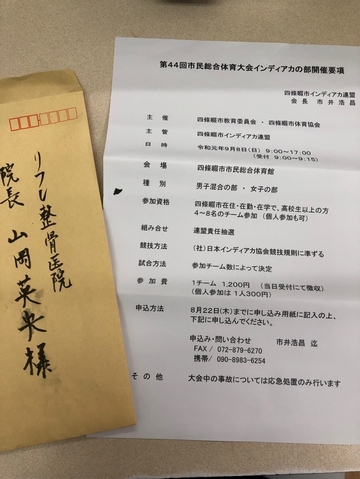 リフレ整骨医院
院長 山岡英央様
第44回市民総合体育大会インディアカの部開催要項
四條畷市インディアカ連盟
会長 市井浩昌
主催 四條畷市教育委員会・四條畷市体育協会
主管 四條畷市インディアカ連盟
日時 令和元年9月8日(日) 9:00~17:00
(受付 9:00~9:15)
会場 四條畷市市民総合体育館
種別 男子混合の部・女子の部
参加資格 四條畷市在住・在勤・在学で、高校生以上の方
4~8名のチーム参加 (個人参加も可)
組み合せ 連盟責任抽選
競技方法 (社)日本インディアカ協会競技規則に準ずる
試合方法 参加チーム数によって決定
参加費 1チーム 1,200円 (当日受付にて徴収)
(個人参加は1人300円)
申込方法 8月22日(木)までに申し込み用紙に記入の上、
下記に申し込んでください。
申込み・問い合わせ 市井浩昌 迄
FAX / 072-879-6270
携帯/ 090-8983-6254
その他 大会中の事故については応急処置のみ行います